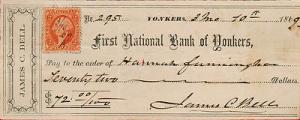 No. 295. YONKERS, 3/mo. 10th 186
First National Bank of Yonkers,
Pay to the order of Hannah Cunningham
Seventy two Dollars
$72 00/100 James C. Bell
JAMES C. BELL.